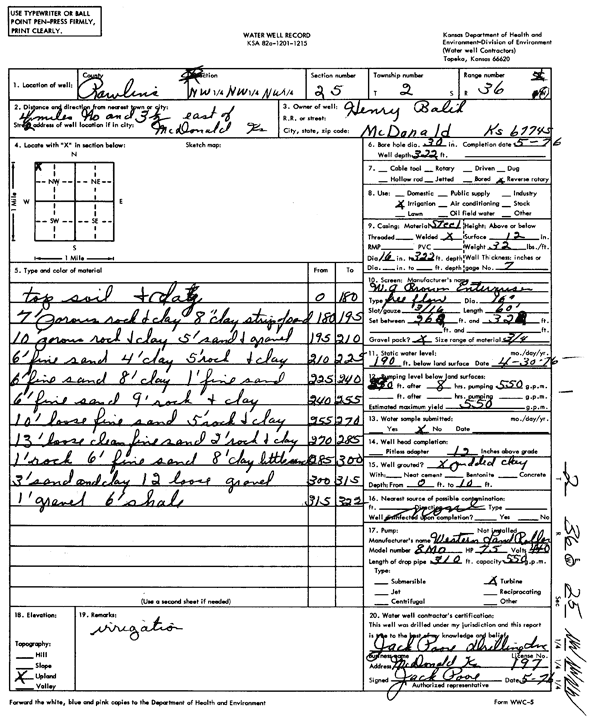 USE TYPEWRITER OR BALL
POINT PEN-PRESS FIRMLY,
PRINT CLEARLY.
WATER WELL RECORD
KSA 82a-1201-1215
Kansas Department of Health and
Environment-Division of Environment
(Water well Contractors)
Topeka, Kansas 66620
1. Location of well:
County
Rawlins
Fraction
NW 1/4 NW 1/4 NW 1/4
Section number
25
Township number
T 2 S
Range number
R 36
2. Distance and direction from nearest town or city:
4 miles No and 3 1/2 east of
Street address of well location if in city:
McDonald Ks
3. Owner of well: Henry Balik
R.R. or street:
City, state, zip code: McDonald Ks 67745
4. Locate with "X" in section below:
Sketch map:
N
X
NW NE
W E
SW SE
S
1 Mile
1 Mile
5. Type and color of material
From To
top soil & clay 0 180
7' porous rock & clay 8' clay strips sand 180 195
10 porous rock & clay 5' sand & gravel 195 210
6' fine sand 4' clay 5' rock & clay 210 225
6' fine sand 8' clay 1' fine sand 225 240
6' fine sand 9' rock & clay 240 255
10' loose fine sand 5' rock & clay 255 270
13' loose clean fine sand 2' rock & clay 270 285
1' rock 6' fine sand 8' clay little sand 285 300
3' sand and clay 12 loose gravel 300 315
1' gravel 6' shale 315 322
(Use a second sheet if needed)
6. Bore hole dia. 30 in. Completion date 5-76
Well depth 322 ft.
7. Cable tool Rotary Driven Dug
Hollow rod Jetted Bored X Reverse rotary
8. Use: Domestic Public supply Industry
X Irrigation Air conditioning Stock
Lawn Oil field water Other
9. Casing: Material Steel Height: Above or below
Threaded Welded X Surface 12 in.
RMP PVC Weight 32 lbs./ft.
Dia 16 in. to 322 ft. depth Wall Thickness: inches or
Dia. in. to ft. depth gage No. 7
10. Screen: Manufacturer's name
W.G. Brown Enterprise
Type free flow Dia. 16"
Slot/gauze 3/16 Length 60'
Set between 268 ft. and 328 ft.
ft. and ft.
Gravel pack? X Size range of material 3/4
11. Static water level: mo./day/yr.
190 ft. below land surface Date 4-30-76
12. Pumping level below land surface:
ft. after 8 hrs. pumping 550 g.p.m.
ft. after hrs. pumping g.p.m.
Estimated maximum yield 550 g.p.m.
13. Water sample submitted: mo./day/yr.
Yes X No Date
14. Well head completion:
Pitless adapter 12 Inches above grade
15. Well grouted? X
With: Neat cement Bentonite Concrete
Depth: From 0 ft. to 10 ft.
16. Nearest source of possible contamination:
ft. Direction Type
none
Well disinfected upon completion? Yes No
17. Pump: Not installed
Manufacturer's name Western Land Roller
Model number 8MO HP 75 Volts 440
Length of drop pipe 310 ft. capacity 550 g.p.m.
Type:
Submersible X Turbine
Jet Reciprocating
Centrifugal Other
18. Elevation:
Topography:
Hill
Slope
X Upland
Valley
19. Remarks:
irrigation
20. Water well contractor's certification:
This well was drilled under my jurisdiction and this report
is true to the best of my knowledge and belief.
Jack Poore Drilling Inc
Business name License No.
Address McDonald Ks 197
Signed Jack Poore Date 5-76
Authorized representative
T 2 R 36 W Sec 25 NW 1/4 NW 1/4 NW 1/4
Forward the white, blue and pink copies to the Department of Health and Environment
Form WWC-5